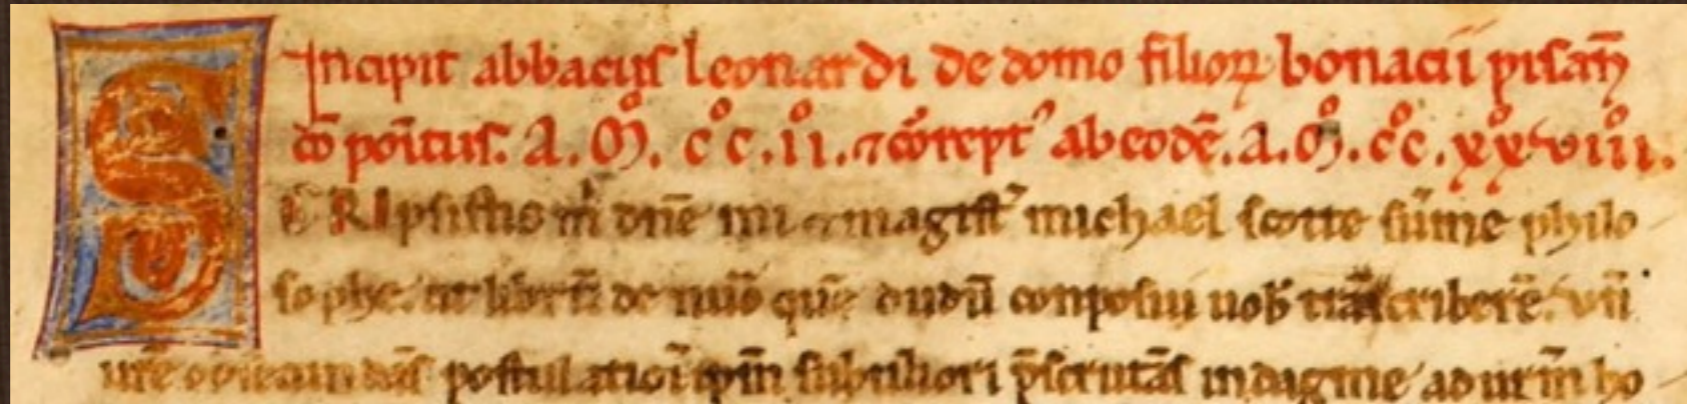 Incipit abbacus leonardi de domo filioꝝ bonacii pisani
ꝯpoītus. A. M̊. c̊c.i̊i. ⁊ cōrept᾽ ab eodē. a. M̊. c̊c. xxviii.
SCRIpsistis m̄ dn̄e mi ⁊ magist᷑ michael scotte sūme philo
sophe. ut librū de nūo quē dudū conposui uob trāscriberē. vn̄
ur̄e postulatiōi ip̄m subtiliori p̄scrutās indagine ad ur̄m ho